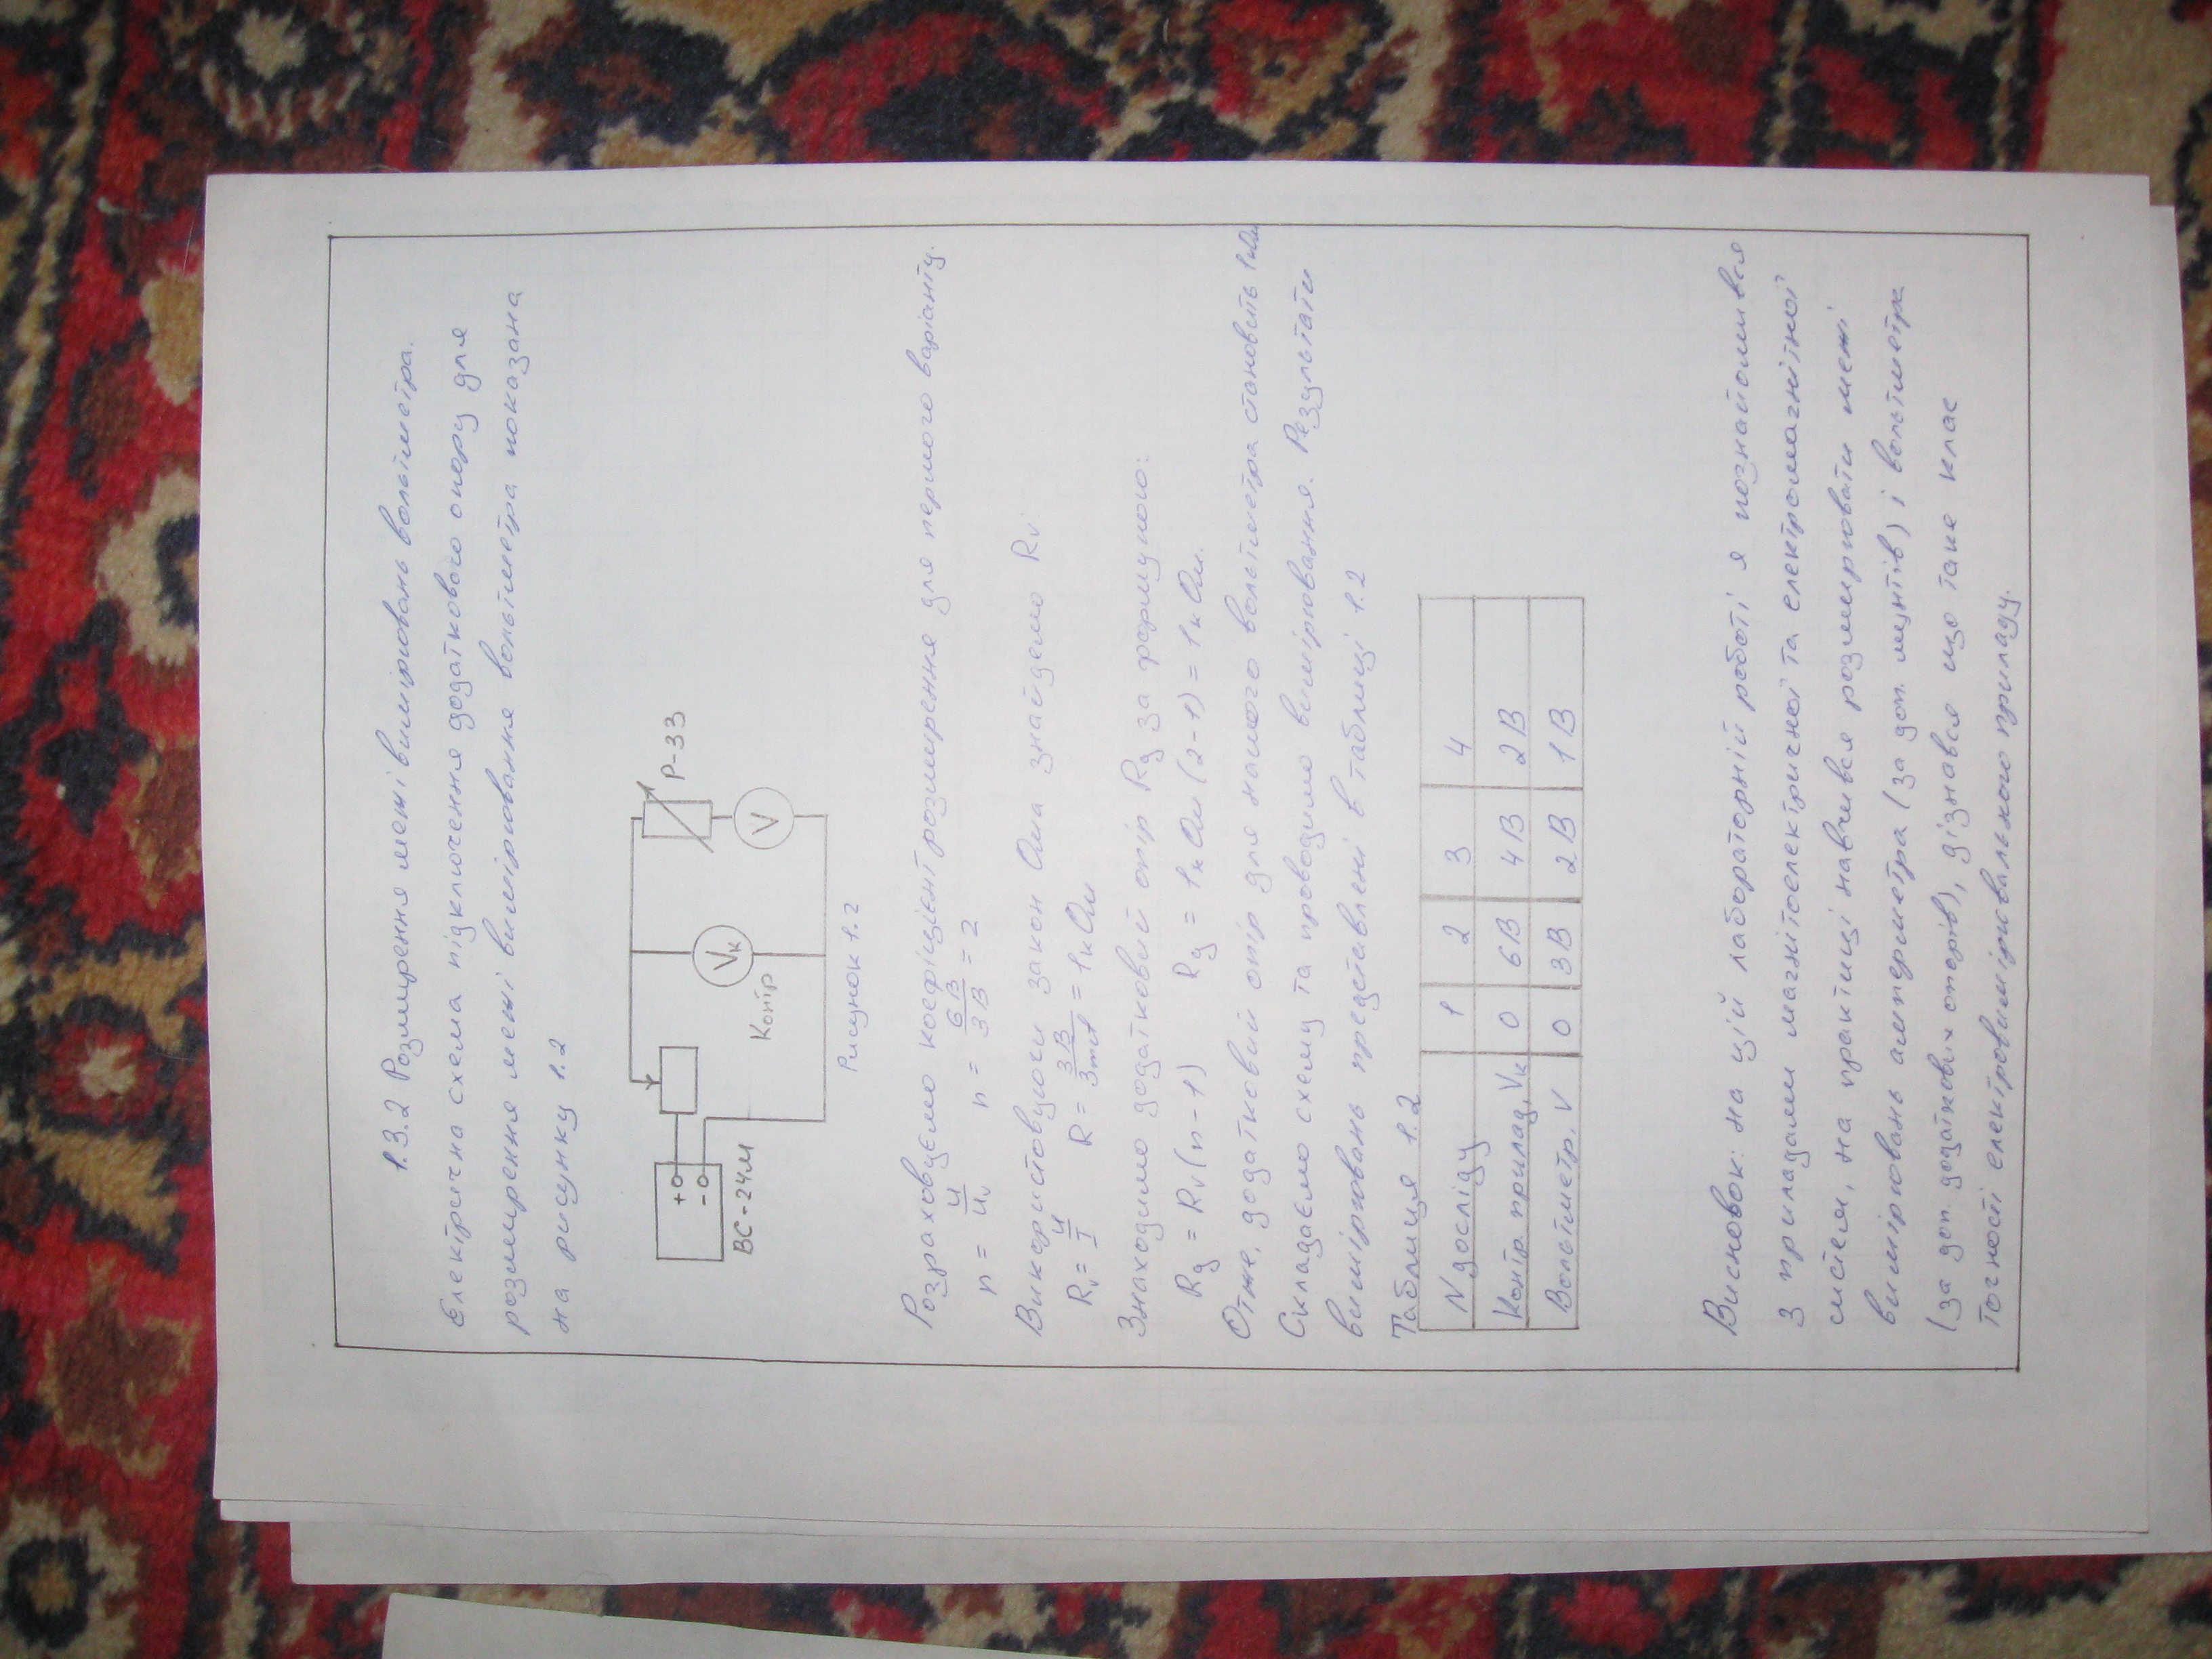 1.3.2 Розширення межі вимірювань вольтметра.
Електрична схема підключення додаткового опору для
розширення межі вимірювання вольтметра показана
на рисунку 1.2
Р-33
+
-
ВС-24М
Vк
Контр
V
Рисунок 1.2
Розраховуємо коефіцієнт розширення для першого варіанту.
n = U/Uv n = 6В/3В = 2
Використовуючи закон Ома знайдемо Rv
Rv = U/I R = 3В/3mA = 1кОм
Знаходимо додатковий опір Rg за формулою:
Rg = Rv(n-1) Rg = 1кОм(2-1) = 1кОм.
Отже, додатковий опір для нашого вольтметра становить 1кОм
Складаємо схему та проводимо вимірювання. Результати
вимірювань представлені в таблиці 1.2
Таблиця 1.2
N досліду 1 2 3 4
Контр. прилад, Vк 0 6В 4В 2В
Вольтметр, V 0 3В 2В 1В
Висновок: на цій лабораторній роботі я познайомився
з приладами магнітоелектричної та електромагнітної
систем, на практиці навчився розширювати межі
вимірювань амперметра (за доп. шунтів) і вольтметра
(за доп. додаткових опорів), дізнався що таке клас
точності електровимірювального приладу.